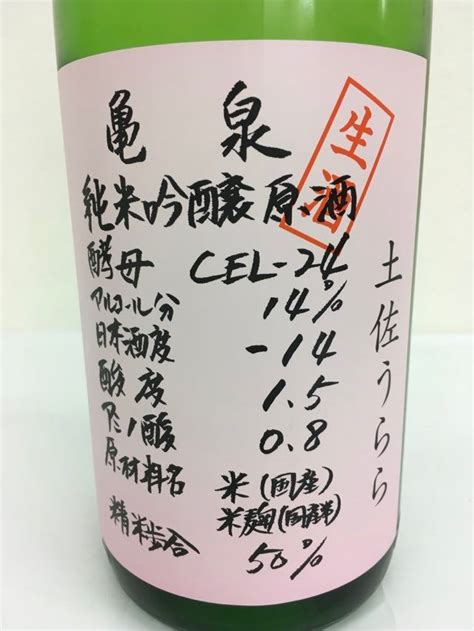 亀泉
生酒
純米吟醸原酒
酵母 CEL-24
アルコール分 14%
日本酒度 -14
酸度 1.5
アミノ酸 0.8
原材料名 米(国産)
米麹(国産米)
精米歩合 50%
土佐うらら